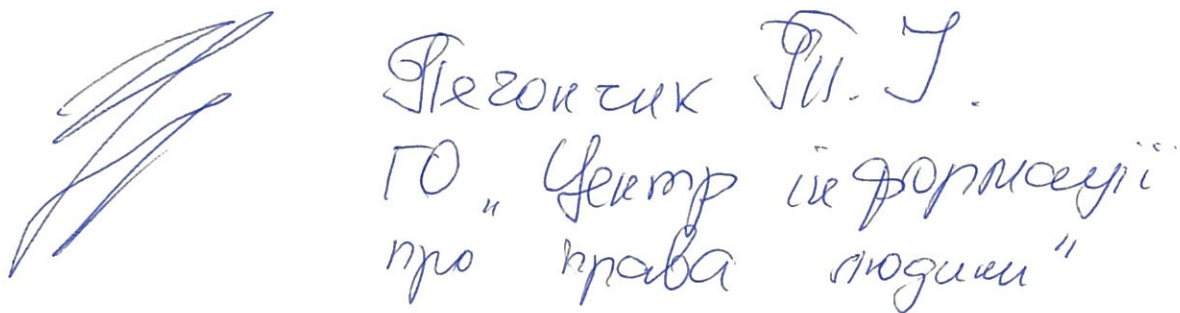 Печончик Т. І.
ГО „Центр інформації
про права людини"